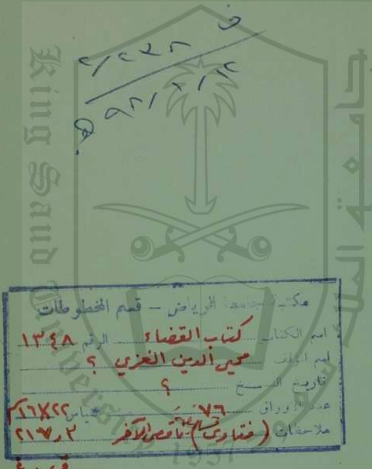 ف ٢/٢٣٢
٩٢/٢/١٢ هـ
King Saud University
جامعة الملك
مكتبة جامعة الرياض - قسم المخطوطات
اسم الكتاب كتاب القضاء الرقم ١٣٤٨
اسم المؤلف محيي الدين الغزي ؟
تاريخ النسخ ؟
عدد الأوراق ٧٦ قياس ١٦x٢٢م
ملاحظات (فتاوى) ناقص الآخر ٢١٧٫٢
1957